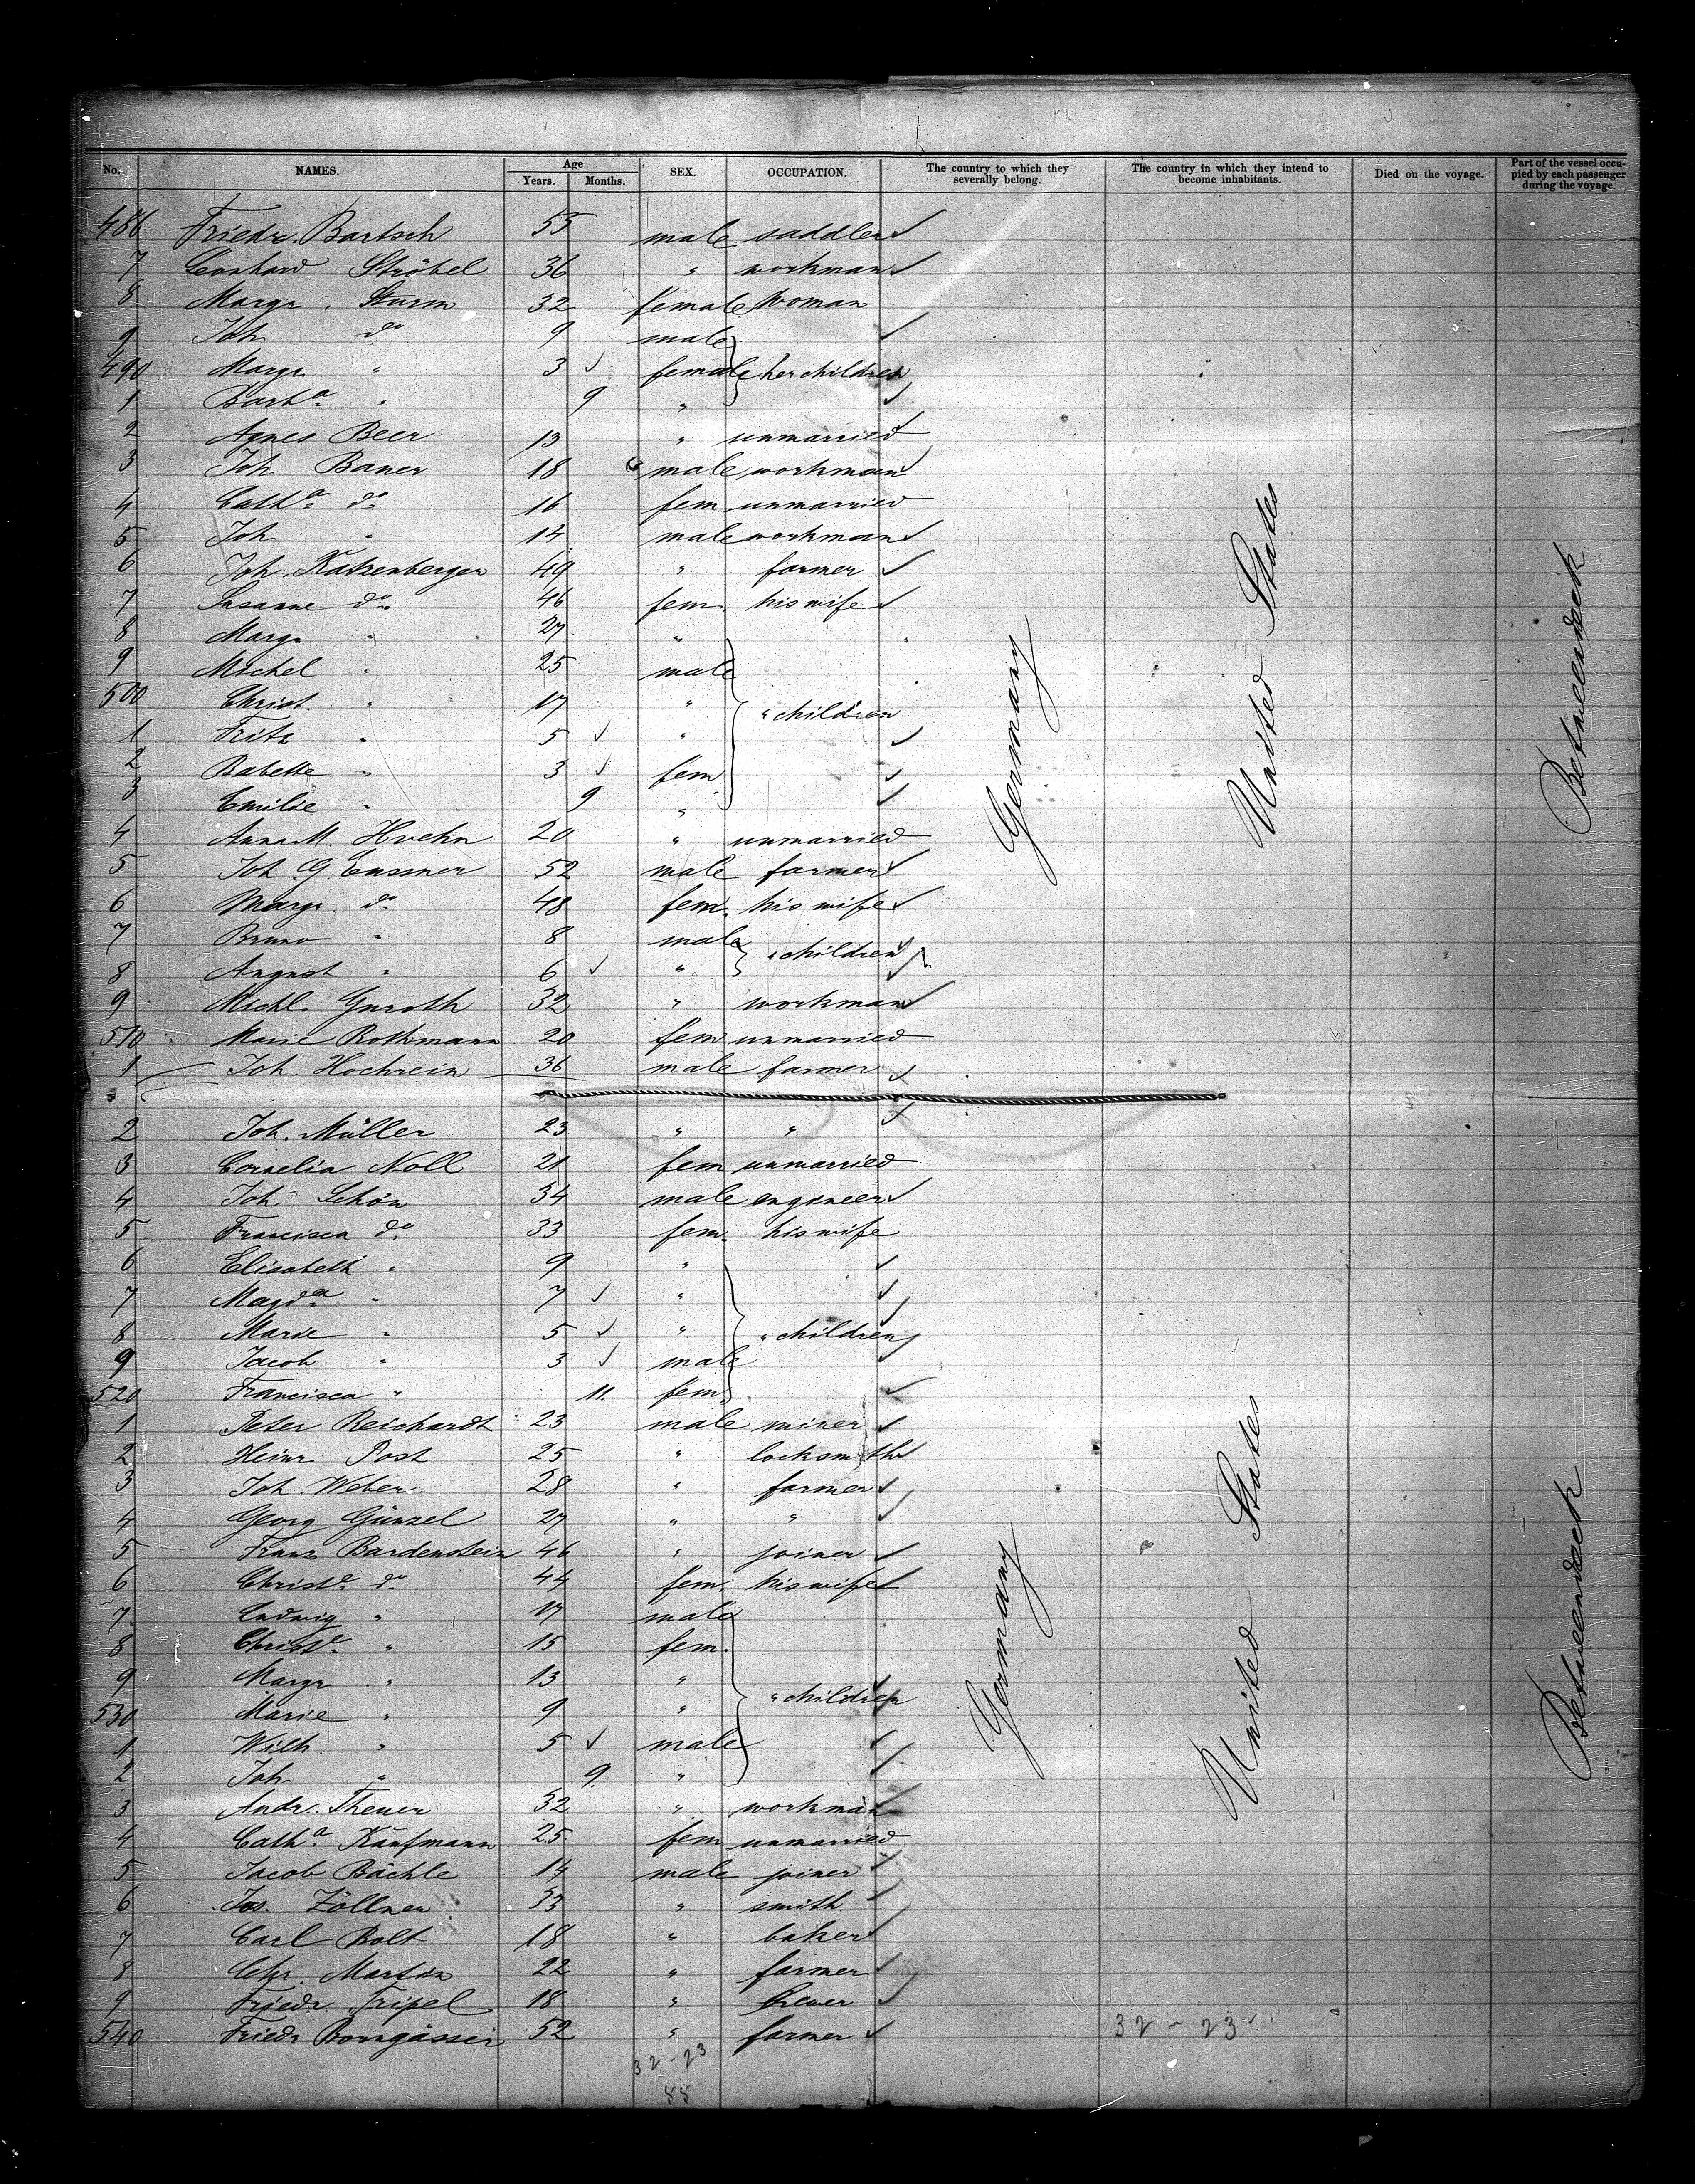 No. NAMES. Age Years. Months. SEX. OCCUPATION. The country to which they severally belong. The country in which they intend to become inhabitants. Died on the voyage. Part of the vessel occupied by each passenger during the voyage.
486 Friedr. Bartsch 55 male saddler ✓
7 Ströbel 36 " workman ✓
8 Margr. Sturm 32 female woman
9 Joh. do 9 male ✓
490 Margr. " 3 ✓ female her children
1 Barba " 9 " ✓
2 Agnes Beer 13 " unmarried
3 Joh. Baner 18 male workman ✓
4 Catha do 16 fem. unmarried
5 Joh. " 14 male workman ✓
6 Joh. Katzenberger 49 " farmer ✓
7 Susanne do 46 fem. his wife ✓
8 Margr. " 27 "
9 Michel " 25 male
500 Christ. " 17 " " children
1 Fritz " 5 ✓ " ✓
2 Babette " 3 ✓ fem ✓
3 Emilie " 9 " ✓
4 Anna M. 20 " unmarried
5 Joh. G. 52 male farmer ✓
6 Margr. do 48 fem. his wife ✓
7 Bruno " 8 male " children ✓
8 August " 6 ✓ " ✓
9 Michl. 32 " workman ✓
510 Marie Rothmann 20 fem unmarried
1 Joh. Hochrein 36 male farmer ✓
2 Joh. Müller 23 " " ✓
3 Cornelia Noll 21 fem unmarried
4 Joh. Schön 34 male engineer ✓
5 Francisca do 33 fem. his wife
6 Elisabeth " 9 " ✓
7 Magda " 7 ✓ " ✓
8 Marie " 5 ✓ " " children ✓
9 Jacob " 3 ✓ male ✓
520 Francisca " 11 fem ✓
1 Peter Reichardt 23 male miner ✓
2 Heinr. Post 25 " locksmith ✓
3 Joh. Weber 28 " farmer ✓
4 Georg Günzel 27 " " ✓
5 Franz Bardenstein 46 " joiner ✓
6 Christe do 44 fem. his wife ✓
7 Ludwig " 17 male
8 Christe " 15 fem.
9 Margr. " 13 " ✓
530 Marie " 9 " " children
1 Wilh. " 5 ✓ male ✓
2 Joh. " 9 " ✓
3 Andr. Theuer 32 " workman
4 Catha Kaufmann 25 fem unmarried
5 Jacob Bächle 14 male joiner ✓
6 Jos. Zöllner 33 " smith ✓
7 Carl Bolt 18 " baker ✓
8 Chr. Martin 22 " farmer ✓
9 Friedr. Tripel 18 " brewer ✓
540 Friedr. 52 " farmer ✓
Germany
United States
Betweendeck
Germany
United States
Betweendeck
32-23
32-23
55